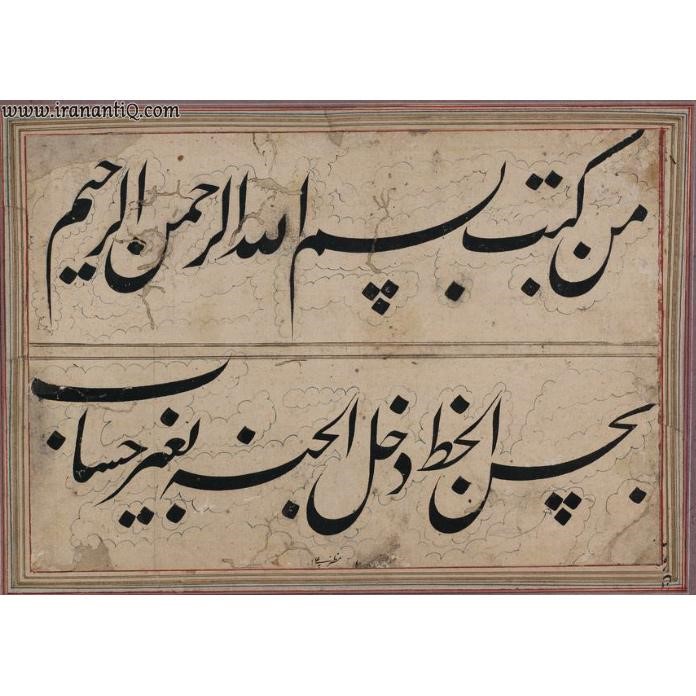 www.iranantiQ.com
من كتب بسم الله الرحمن الرحيم
بحسن الخط دخل الجنة بغير حساب